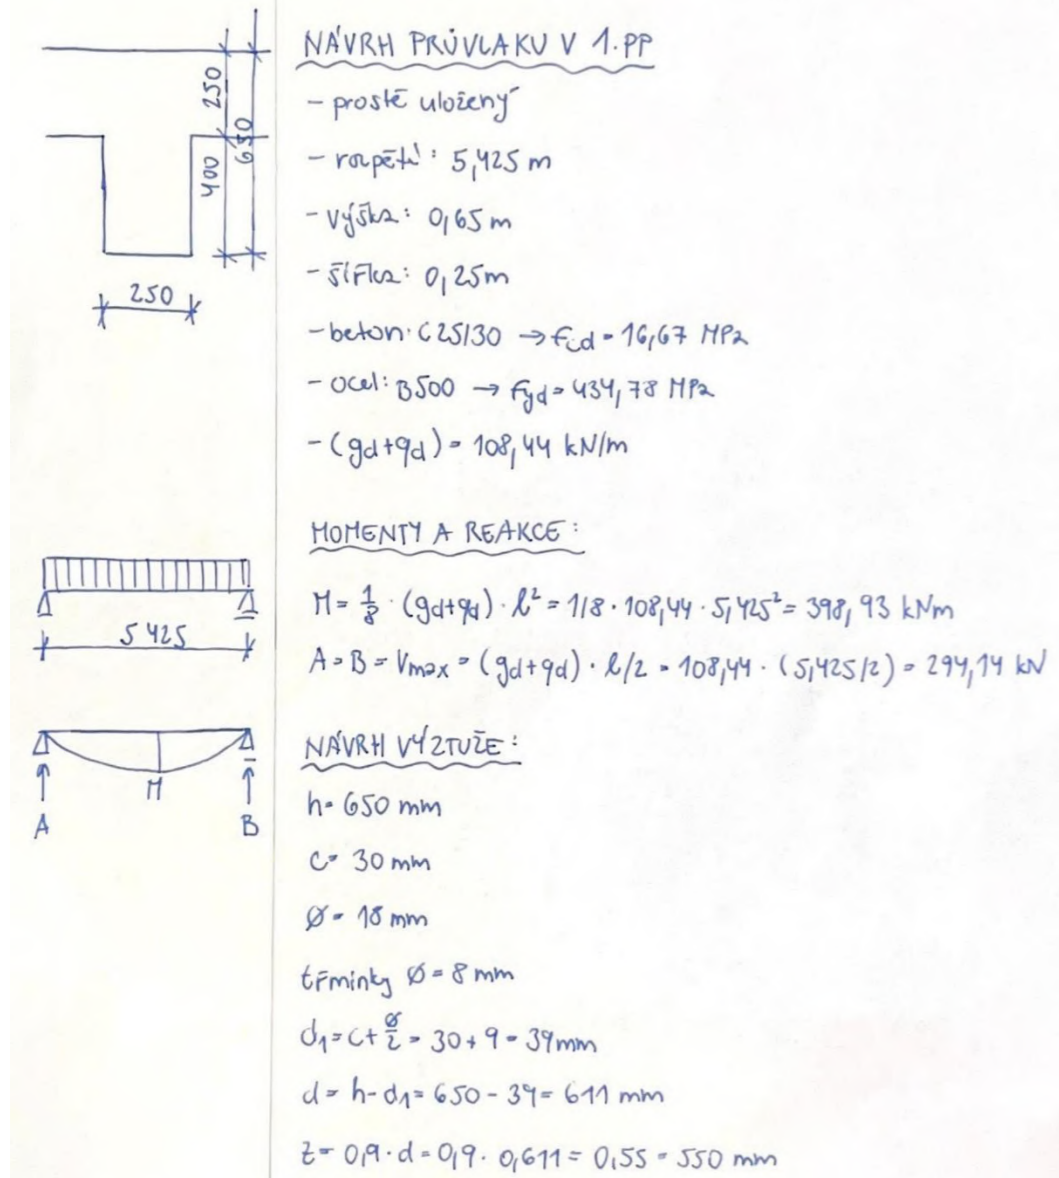 NÁVRH PRŮVLAKU V 1.PP
- prostě uložený
- rozpětí: 5,425 m
- výška: 0,65 m
- šířka: 0,25m
- beton: C25/30 → fcd = 16,67 MPa
- ocel: B500 → fyd = 434,78 MPa
- (gd+qd) = 108,44 kN/m
250
400
650
250
MOMENTY A REAKCE:
M = 1/8 · (gd+qd) · l² = 1/8 · 108,44 · 5,425² = 398,93 kNm
A = B = Vmax = (gd+qd) · l/2 = 108,44 · (5,425/2) = 294,14 kN
5 425
NÁVRH VÝZTUŽE:
h = 650 mm
c = 30 mm
Ø = 18 mm
třmínky Ø = 8 mm
d1 = c + Ø/2 = 30 + 9 = 39 mm
d = h - d1 = 650 - 39 = 611 mm
z = 0,9 · d = 0,9 · 0,611 = 0,55 = 550 mm
M
A
B